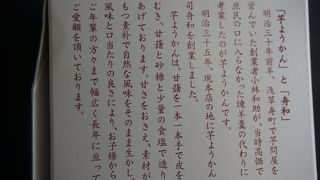 「芋ようかん」と「舟和」
明治三十年前半、浅草寿町で芋問屋を
営んでいた創業者小林和助が、当時高価で
庶民の口に入らなかった煉羊羹の代わりに
考案したのが芋ようかんです。
明治三十五年、現本店の地に芋ようかん
司舟和を創業しました。
芋ようかんは、甘藷を一本一本手で皮を
むき、甘藷と砂糖と少量の食塩で造り
あげております。甘さをおさえ、素材が
もつ素朴で自然な風味をそのまま生かし、
風味と口当たりの良さにより、お子様から
ご年輩の方々まで幅広く長年に亘って
ご愛顧を頂いております。